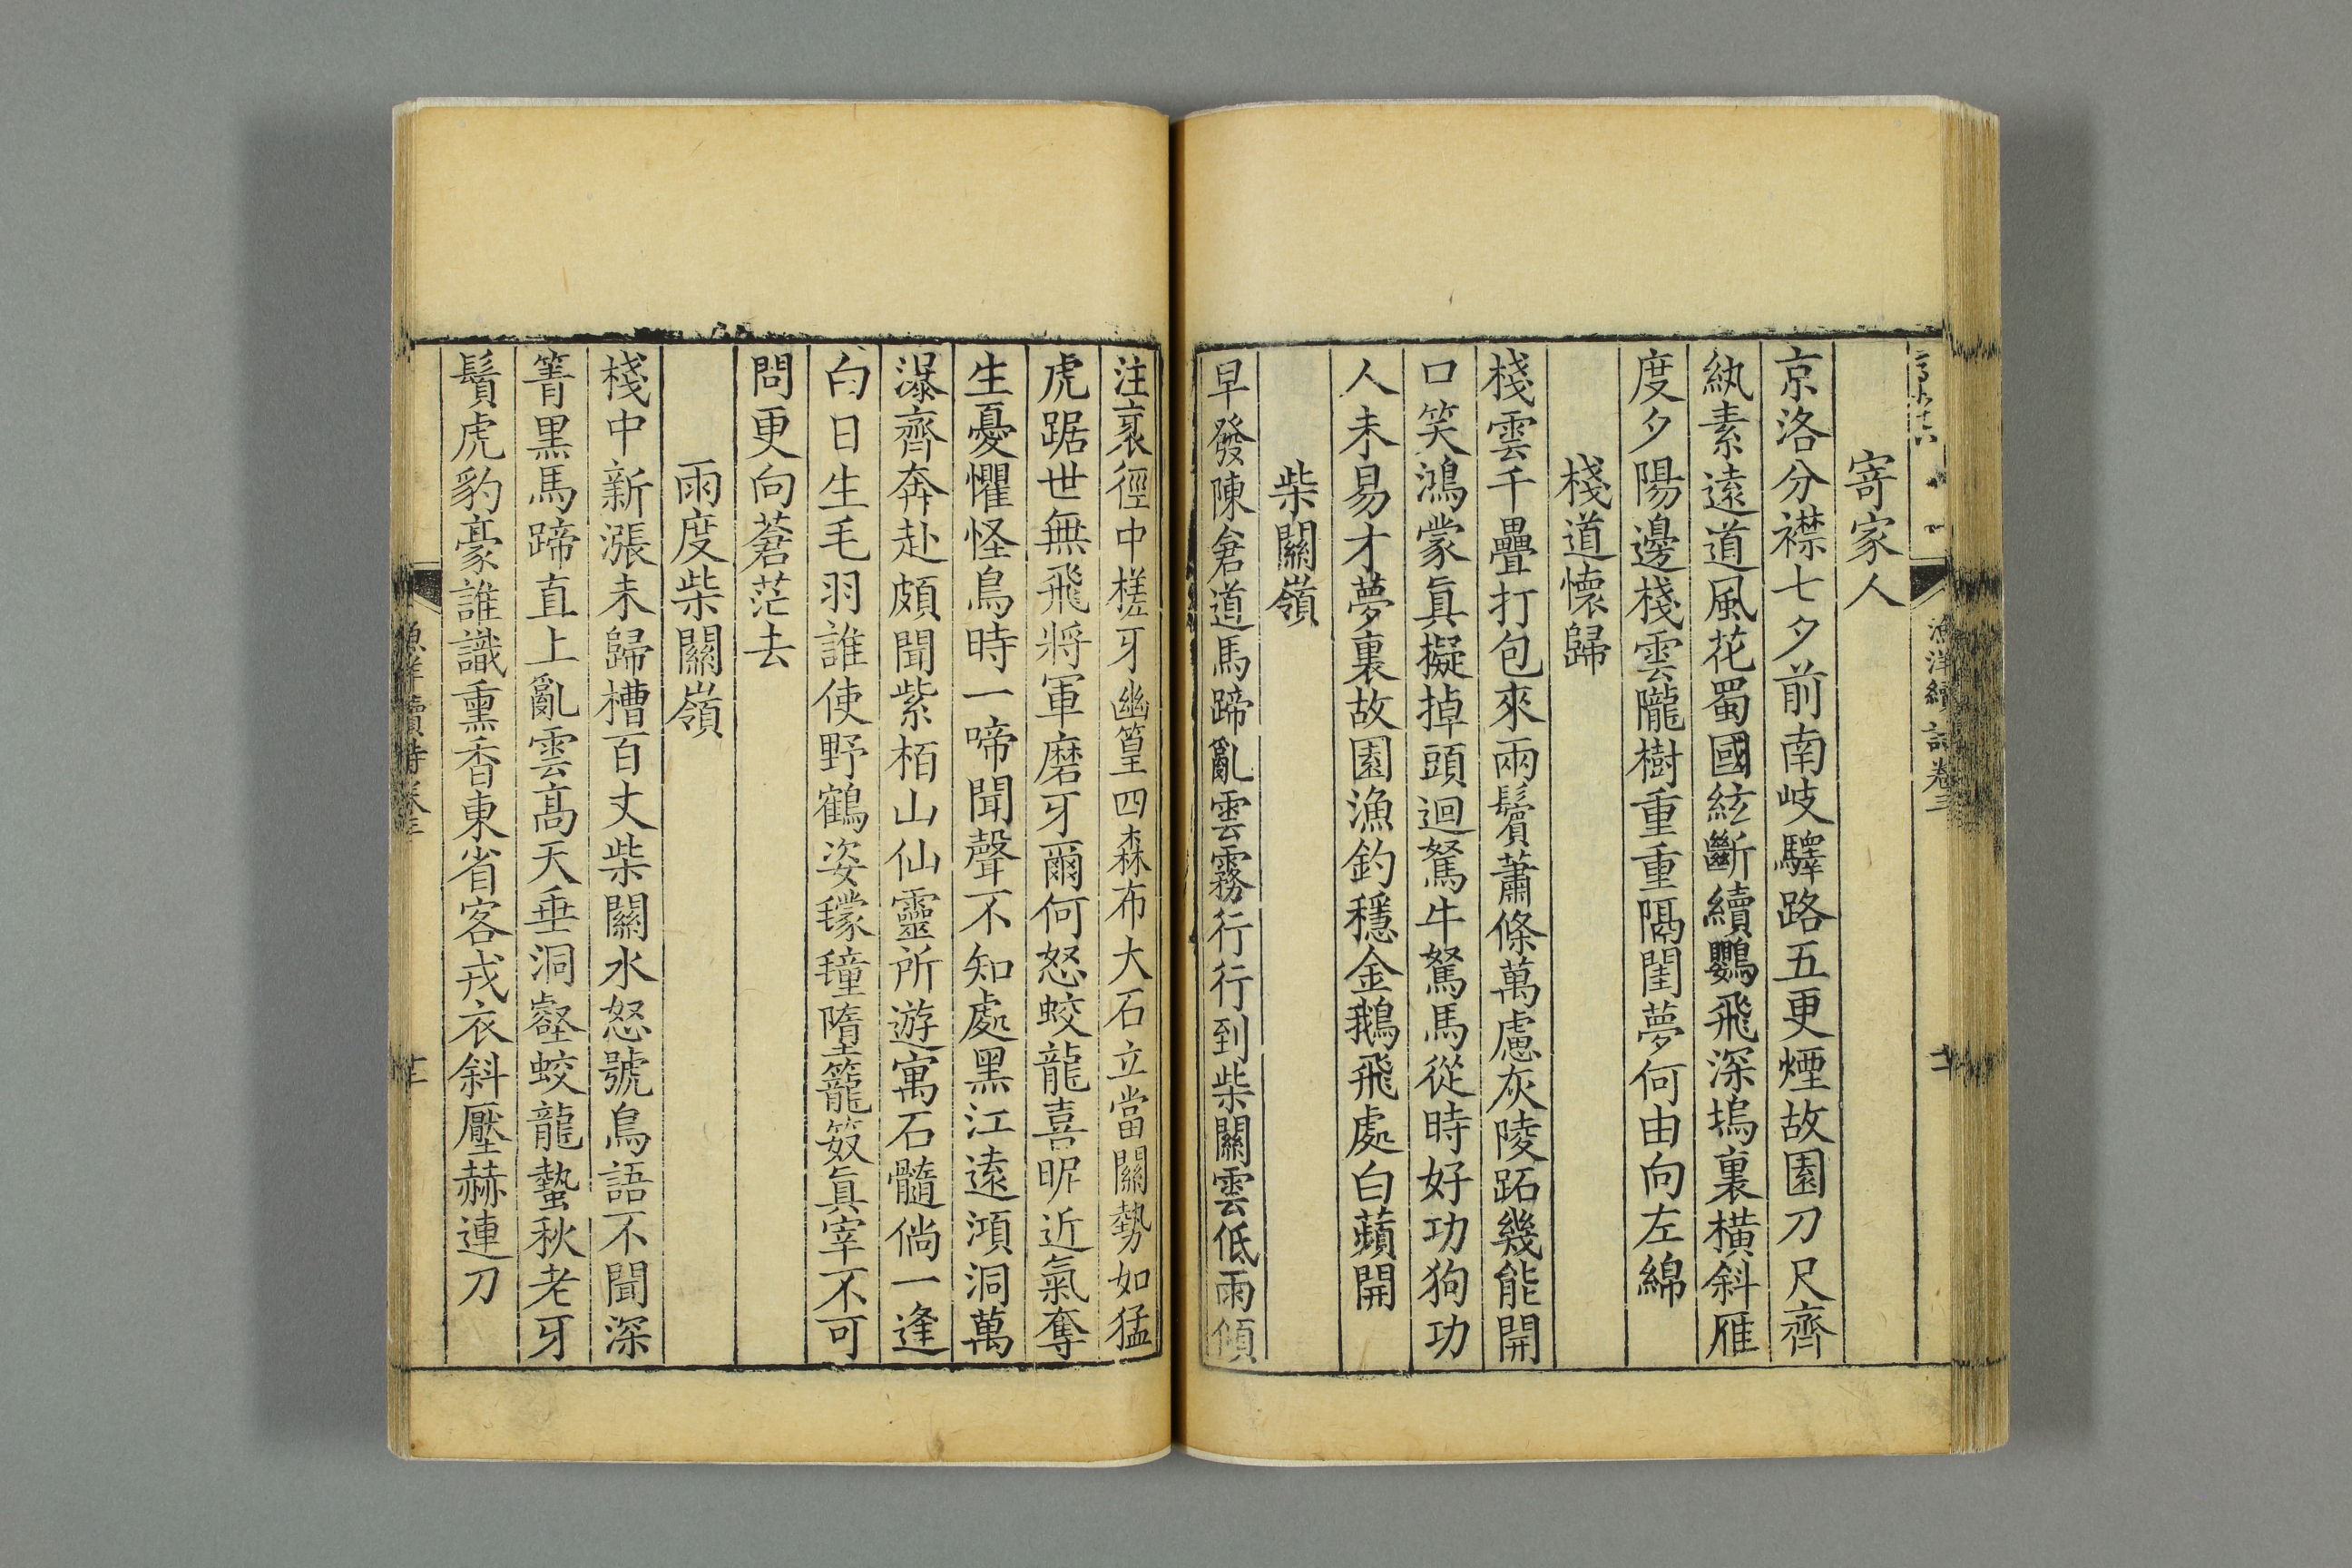 寄家人
京洛分襟七夕前南岐驛路五更煙故園刀尺齊
紈素遠道風花蜀國絃斷續鸚飛深塢裏橫斜雁
度夕陽邊棧雲隴樹重重隔閨夢何由向左綿
棧道懷歸
棧雲千疊打包來兩鬢蕭條萬慮灰陵跖幾能開
口笑鴻蒙眞擬掉頭迴駑牛駑馬從時好功狗功
人未易才夢裏故園漁釣穩金鵝飛處白蘋開
柴關嶺
早發陳倉道馬蹄亂雲霧行行到柴關雲低雨傾
漁洋續詩卷三
注裒徑中槎牙幽篁四森布大石立當關勢如猛
虎踞世無飛將軍磨牙爾何怒蛟龍喜昵近氣奪
生憂懼怪鳥時一啼聞聲不知處黑江遠澒洞萬
瀑齊奔赴頗聞紫栢山仙靈所遊寓石髓倘一逢
白日生毛羽誰使野鶴姿氋氃墮籠笯眞宰不可
問更向蒼茫去
雨度柴關嶺
棧中新漲未歸槽百丈柴關水怒號鳥語不聞深
箐黑馬蹄直上亂雲高天垂洞壑蛟龍蟄秋老牙
鬚虎豹豪誰識熏香東省客戎衣斜壓赫連刀
漁洋續詩卷三